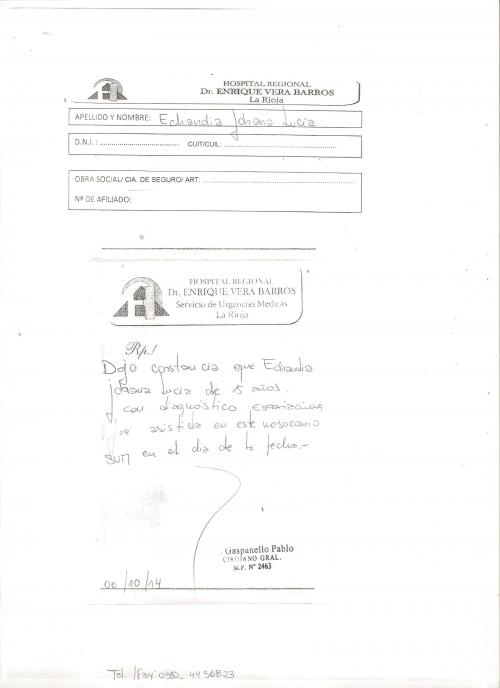 HOSPITAL REGIONAL
Dr. ENRIQUE VERA BARROS
La Rioja
APELLIDO Y NOMBRE: Echandia Johana Lucia
D.N.I. : ........................... CUIT/CUIL: ........................................
OBRA SOCIAL/ CIA. DE SEGURO/ ART: ..................................................
Nº DE AFILIADO:
HOSPITAL REGIONAL
Dr. ENRIQUE VERA BARROS
Servicio de Urgencias Medicas
La Rioja
Rp./
Dejo constancia que Echandia
Johana Lucia de 15 años.
con diagnóstico
asistida en este nosocomio
en el dia de la fecha.-
Gaspanello Pablo
CIRUJANO GRAL.
M.P. Nº 2463
06/10/14
Tel. /Fax: 0380_ 4456823